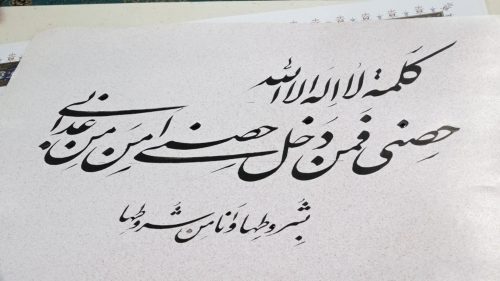 كَلمة لا اِلهَ الا الله
حِصنی فَمن دَخل حصنی اَمِنَ مِن عَذابی
بِشُروطِها وَ انا مِن شُروطِها